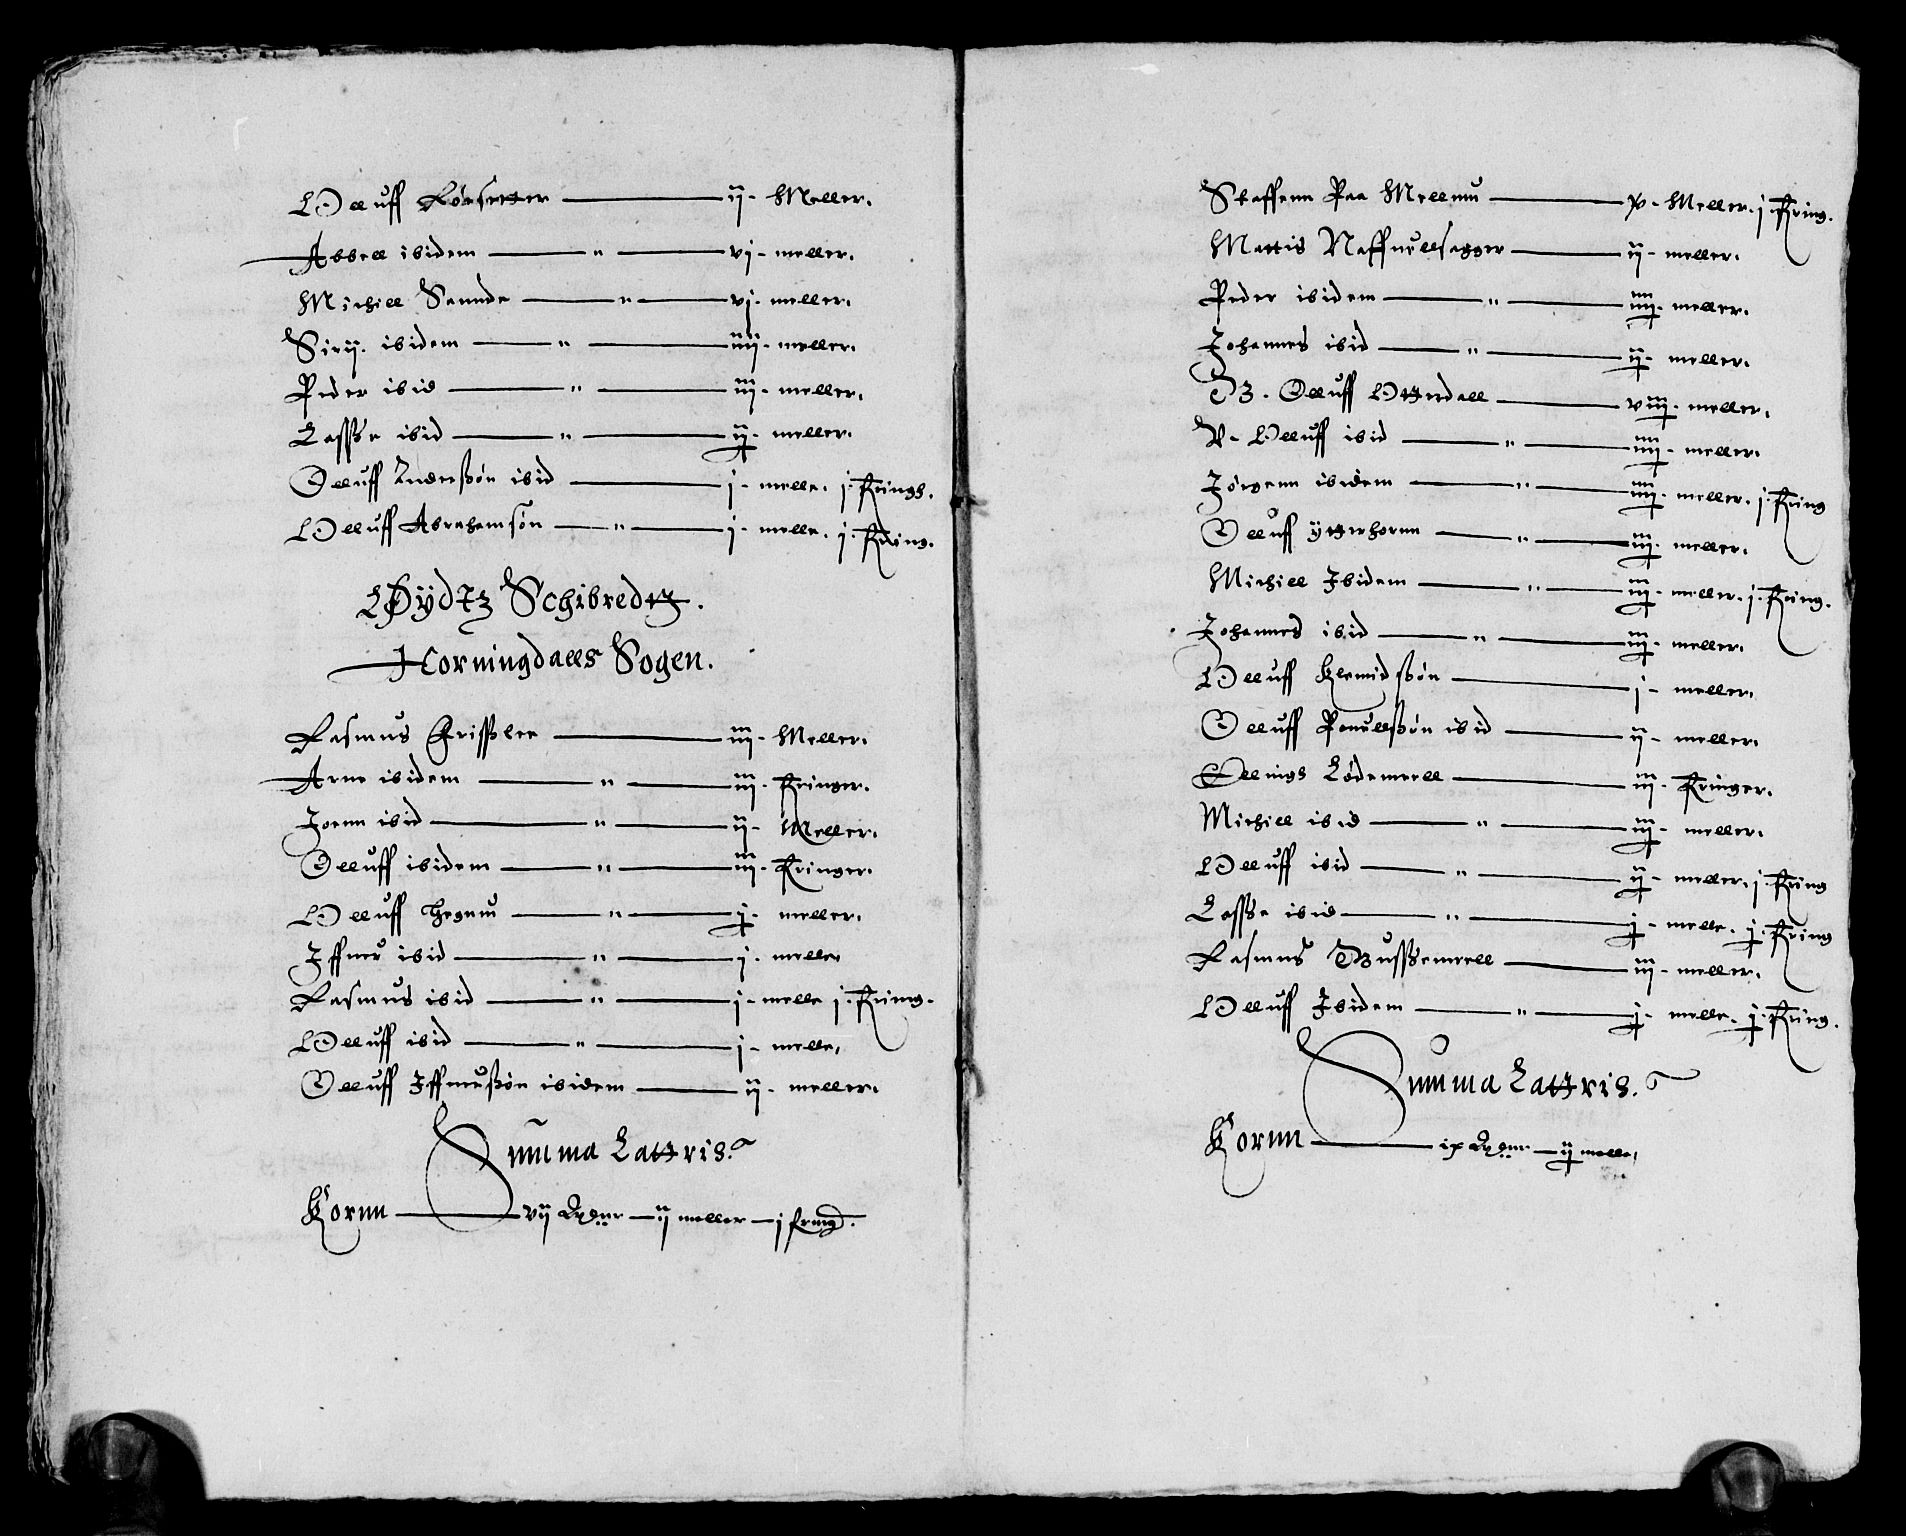 Olluff Rørsetter ——— ij - Meller.
Abbell ibidem — " — vj - meller.
Michell Sannde — " — vj - meller.
Sirij. ibidem — " — iiij - meller.
Peder ibid — " — iij - meller.
Lasse ibid — " — ij - meller.
Olluff Anderssøn ibid ——— j - melle. j. Kring.
Olluff Abrahamsøn — " — j - melle. j. Kring.
Øydtz Schibredtz.
Horningdalls Sogen.
Rasmus Grissler ——— iij - Meller.
Arne ibidem — " — iij - Kringer.
Joenn ibid — " — ij - Meller.
Olluff ibidem — " — iij - Kringer.
Olluff — " — j - meller.
Iffuer ibid — " — j - melle.
Rasmus ibid — " — j - melle j. Kring.
Olluff ibid — " — j - melle.
Olluff Iffuerssøn ibidem ——— ij - meller.
Summa Lattris.
Kornn ——— vij — ij meller — j kring.
Staffenn Paa Mellemu ——— v - Meller. j. Kring.
Mattis Naffuellsagger ——— ij - meller.
Peder ibidem — " — iiij - meller.
Johannes ibid — " — ij - meller.
Olluff Otterdall ——— viij - meller.
V. Olluff ibid — " — iiij - meller.
Jørgenn ibidem — " — iiij - meller. j. Kring
Olluff ytterhornn — " — iij - meller.
Michell Ibidem — " — iij - meller. j. Kring.
Johannes ibid — " — iij - meller.
Olluff Klemidssøn ——— j - meller.
Olluff Pouellssøn ibid ——— ij - meller.
Ellings Lødemell ——— iij - Kringer.
Michell ibid — " — iij - meller.
Olluff ibid — " — ij - meller. j. Kring
Lasse ibid — " — j - melle. j. Kring
Rasmus ——— iij - meller.
Olluff Ibidem — " — j - melle. j. Kring.
Summa Lattris.
Kornn ——— ix — ij melle.